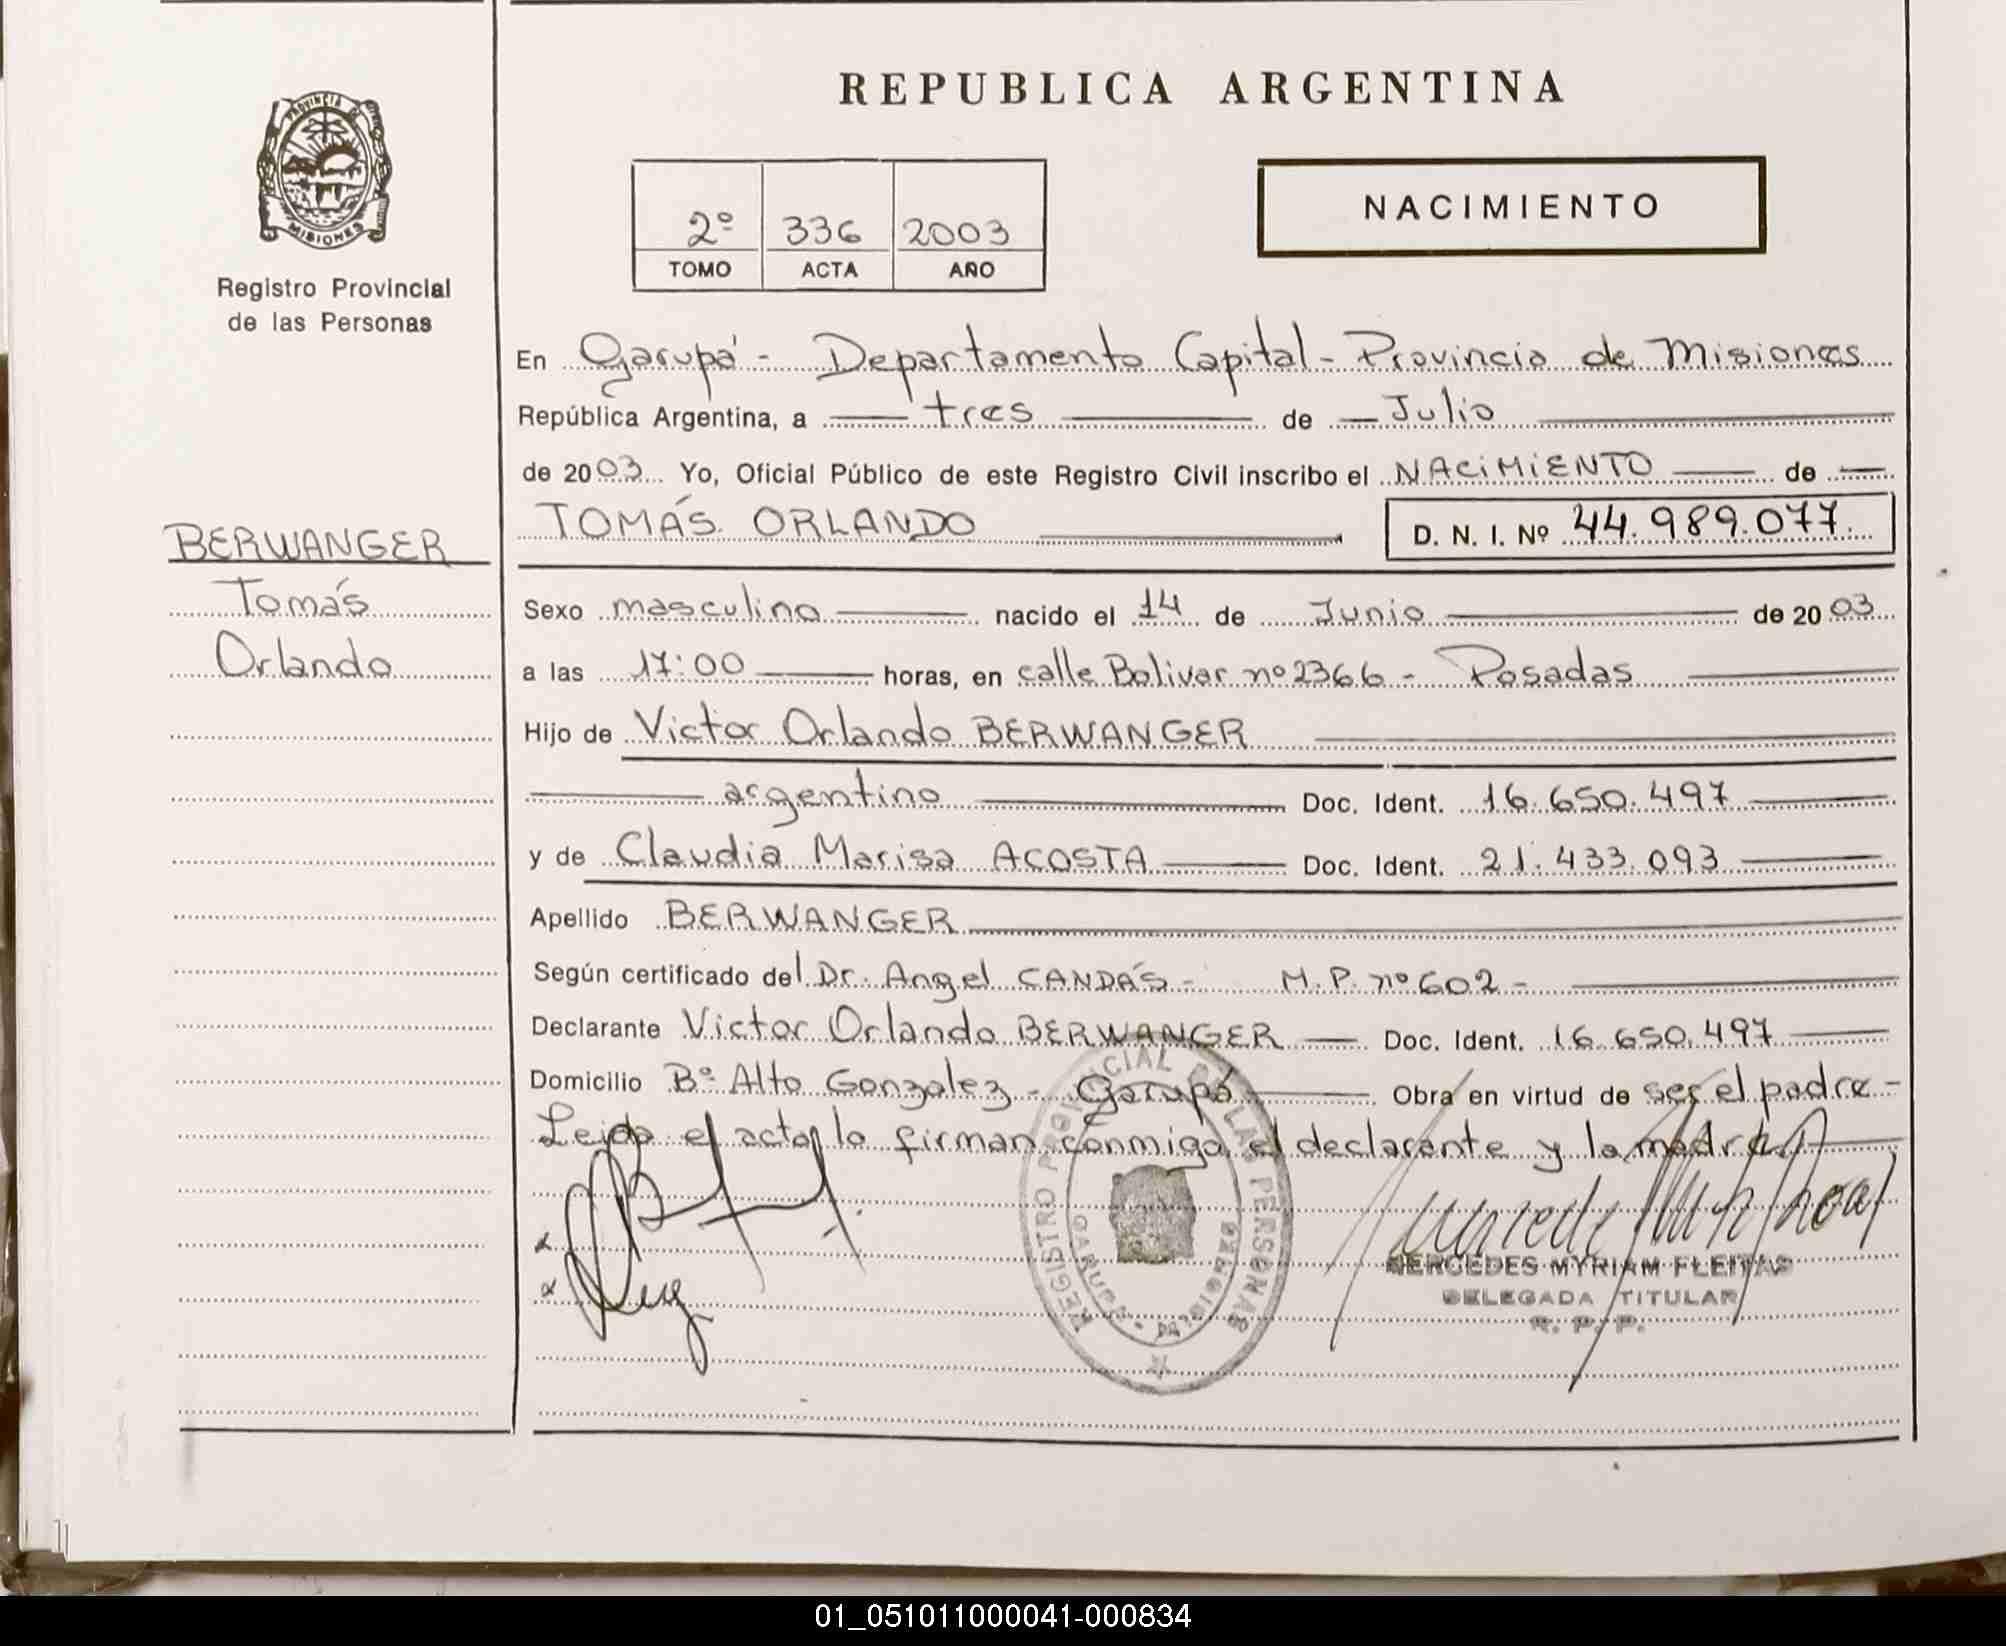 REPUBLICA ARGENTINA
PROVINCIA DE
MISIONES
Registro Provincial
de las Personas
2º 336 2003
TOMO ACTA AÑO
NACIMIENTO
En Garupá - Departamento Capital - Provincia de Misiones
República Argentina, a tres de Julio
de 2003 Yo, Oficial Público de este Registro Civil inscribo el NACIMIENTO de
TOMÁS ORLANDO D. N. I. Nº 44.989.077.
BERWANGER
Tomás
Orlando
Sexo masculino nacido el 14 de Junio de 2003
a las 17:00 horas, en calle Bolivar nº 2366 - Posadas
Hijo de Victor Orlando BERWANGER
argentino Doc. Ident. 16.650.497
y de Claudia Marisa ACOSTA Doc. Ident. 21.433.093
Apellido BERWANGER
Según certificado del Dr. Angel CANDÁS - M.P. nº 602 -
Declarante Victor Orlando BERWANGER Doc. Ident. 16.650.497
Domicilio Bº Alto Gonzalez - Garupá Obra en virtud de ser el padre -
Leida el acta, la firman conmigo el declarante y la madre
REGISTRO PROVINCIAL DE LAS PERSONAS
GARUPA
MERCEDES MYRIAM FLEITAS
DELEGADA TITULAR
R. P. P.
01_051011000041-000834